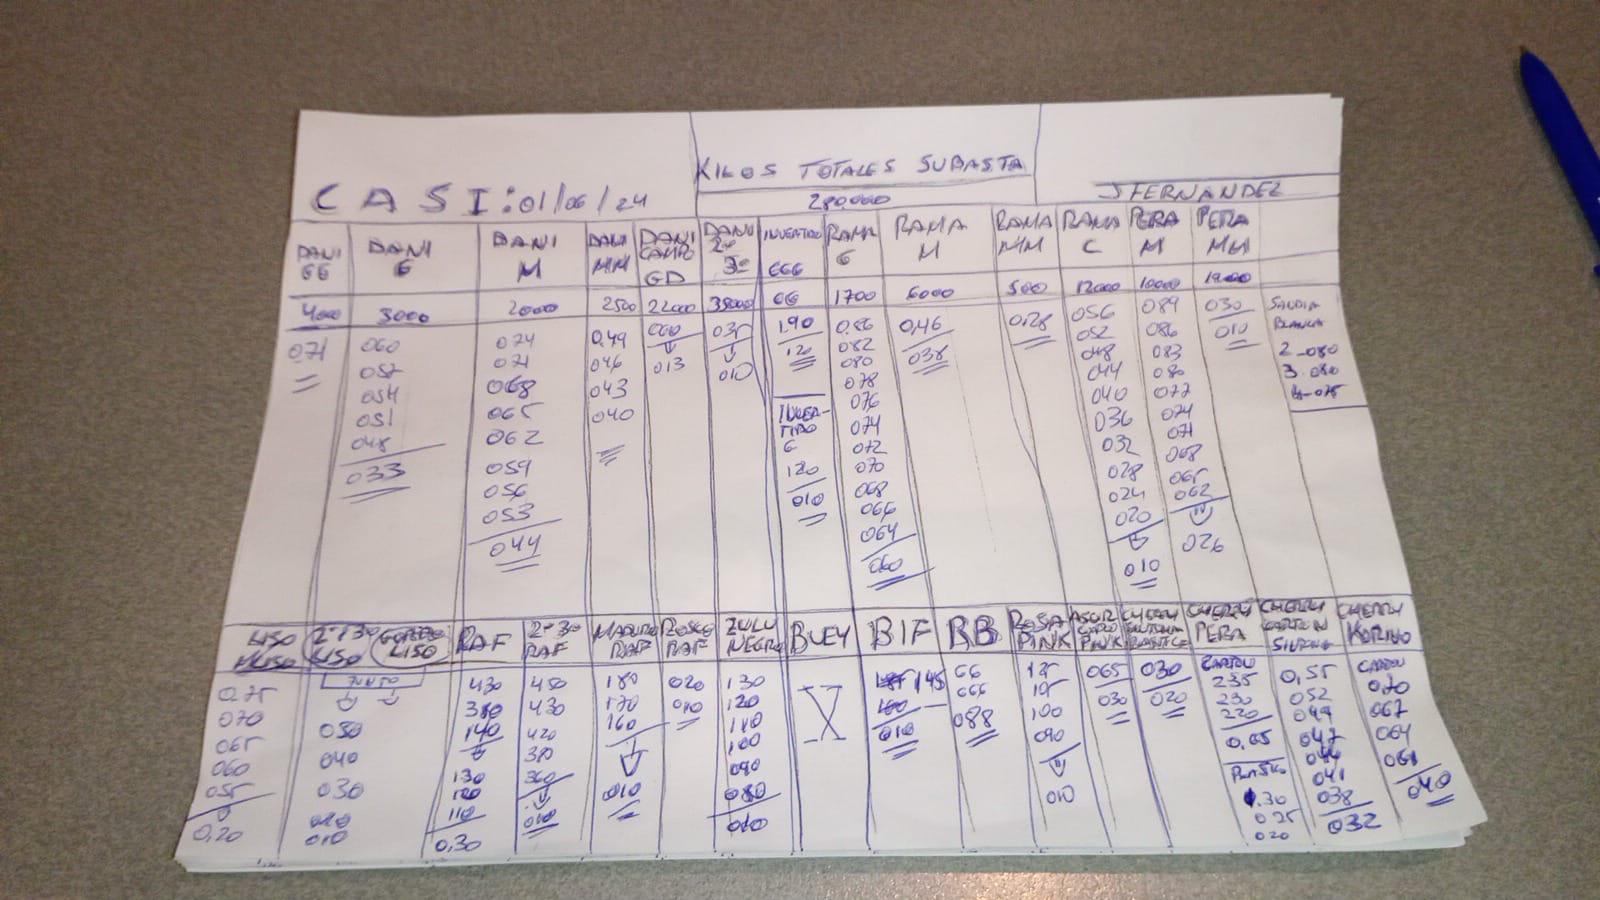 KILOS TOTALES SUBASTA
CASI: 01/06/24 280.000 J FERNANDEZ
DANI GG
4000
071
DANI G
3000
060
057
054
051
048
033
DANI M
20000
074
071
068
065
062
059
056
053
044
DANI MM
2500
049
046
043
040
DANI CANTO GD
22000
060
013
DANI 2ª 3ª
35000
035
010
GGG
GG
190
120
G
120
010
RAMA G
1700
0.86
082
080
078
076
074
072
070
068
066
064
060
RAMA M
6000
0,46
038
RAMA MM
500
0.28
RAMA C
12000
056
052
048
044
040
036
032
028
024
020
010
PERA M
10000
089
086
083
080
077
074
071
068
065
062
026
PERA MM
030
010
SANDIA BLANCA
2-080
3-080
4-075
LISO
0.75
070
065
060
055
0,20
2ª 3ª LISO
GORDO LISO
JUNTO
050
040
030
020
010
RAF
430
380
140
130
120
110
0,30
2ª 3ª RAF
450
430
420
380
360
010
MADURO RAF
180
170
160
010
ROSCO RAF
020
010
ZULU NEGRO
130
120
110
100
090
080
010
BUEY
X
BIF
145
010
RB
GG
GGG
088
ROSA PINK
125
100
090
010
PINK
065
030
CHERRY
030
020
CHERRY PERA
CARTON
235
230
220
0,65
1.30
0.25
020
CHERRY CARTON
0,55
052
049
047
044
041
038
032
CHERRY KORINO
CARTON
070
067
064
061
040